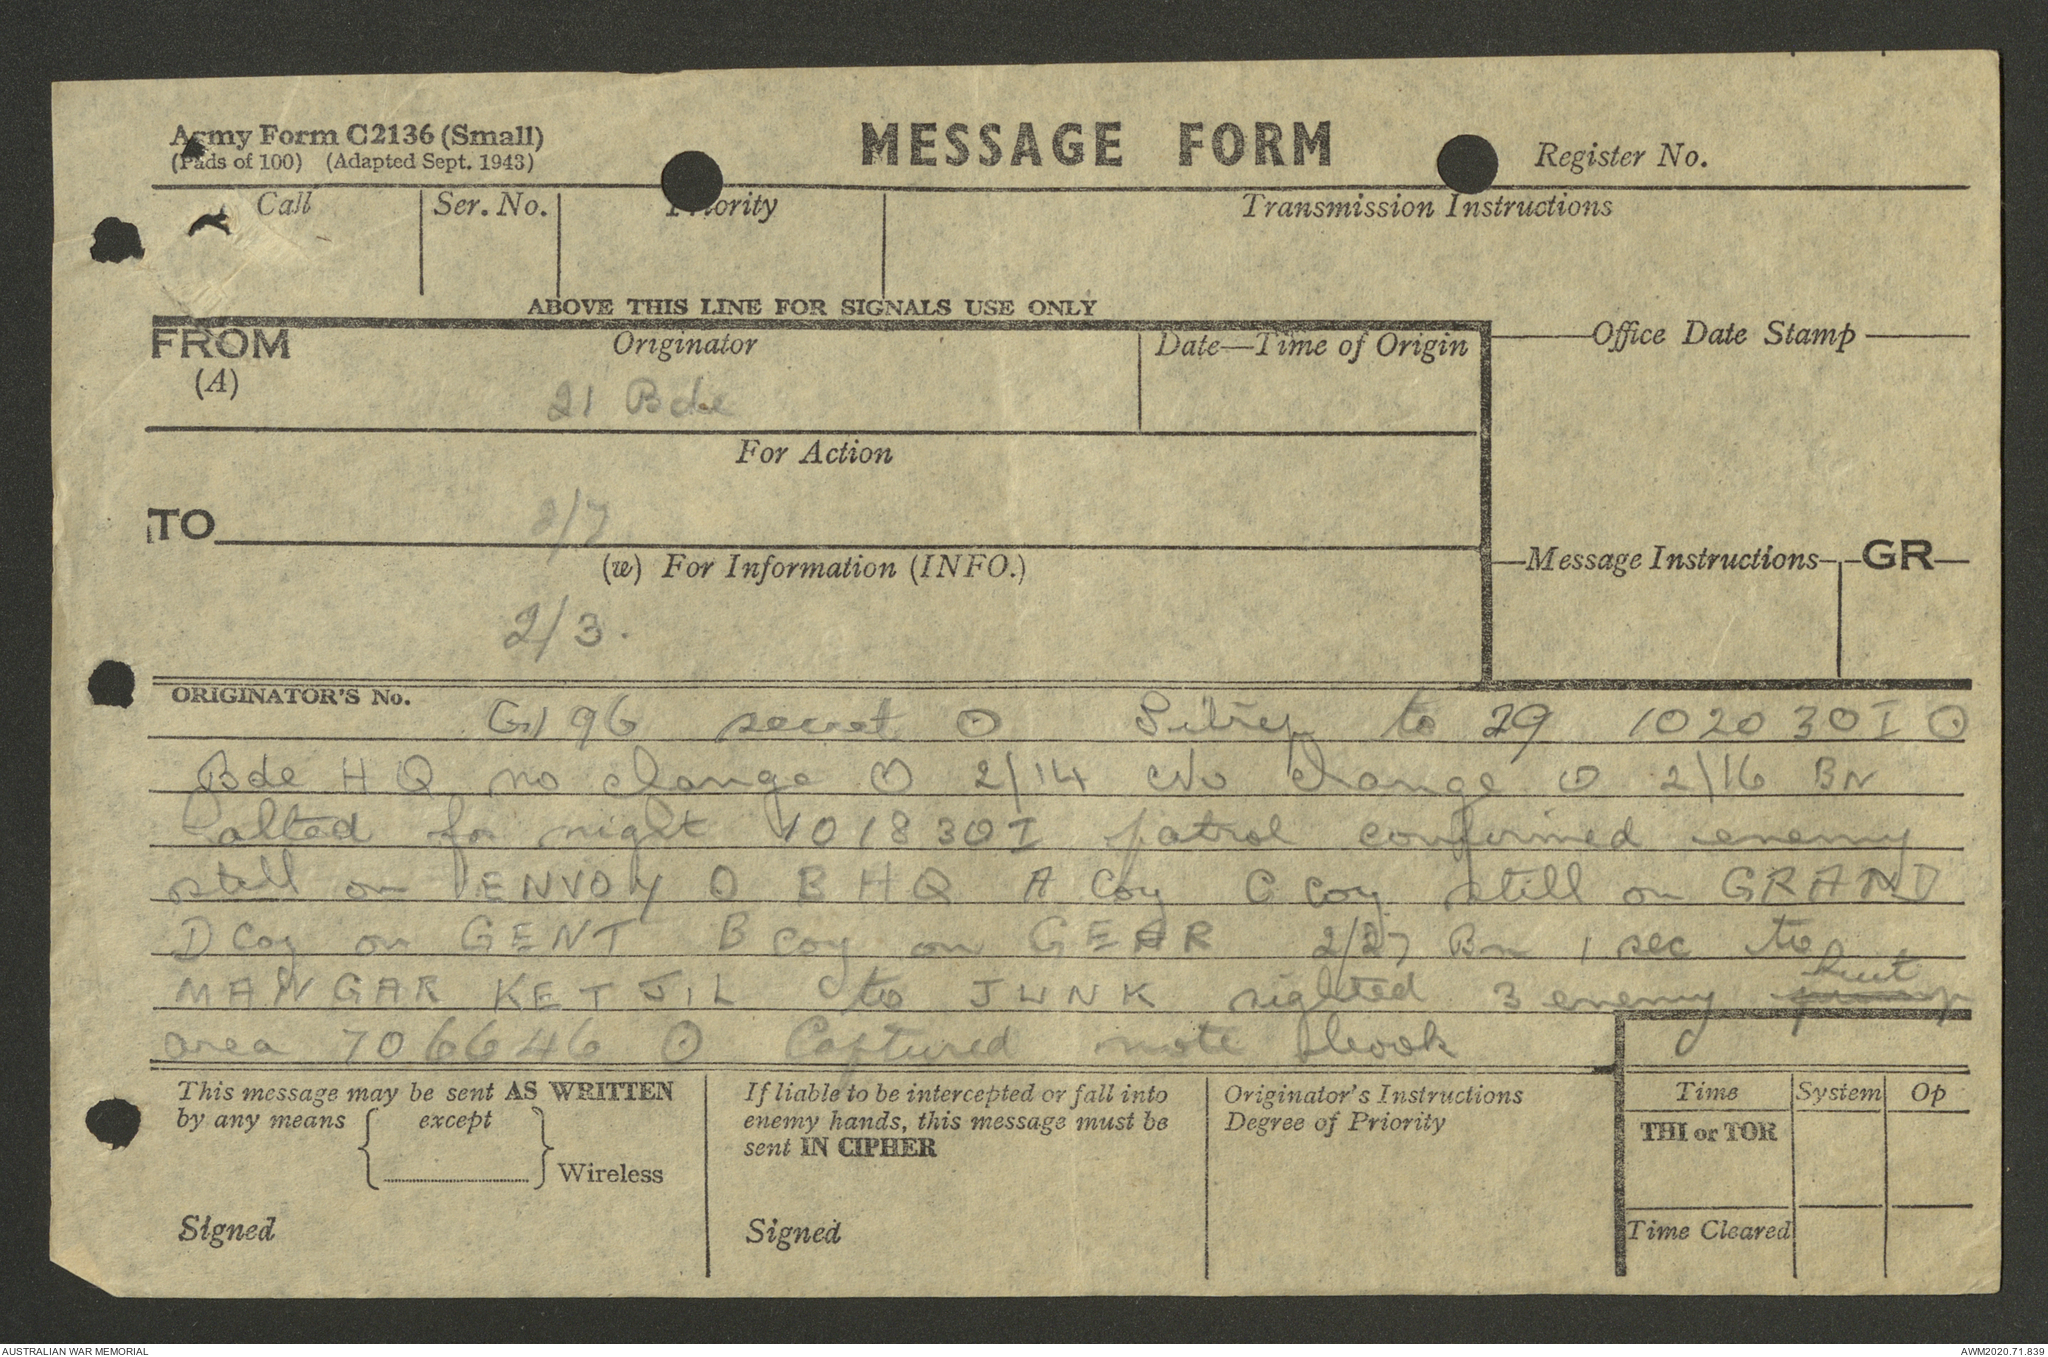 Army Form C2136 (Small)
(Pads of 100) (Adapted Sept. 1943)
MESSAGE FORM
Register No.
Call
Ser. No.
Priority
Transmission Instructions
ABOVE THIS LINE FOR SIGNALS USE ONLY
FROM
(A)
Originator
21 Bde
Date—Time of Origin
Office Date Stamp
For Action
TO
2/7
(w) For Information (INFO.)
2/3.
Message Instructions
GR
ORIGINATOR'S No.
G196 secret O Sitrep to 29 102030I O
Bde HQ no change O 2/14 No change O 2/16 BN
halted for night 101830I patrol confirmed enemy
still on ENVOY O BHQ A Coy C Coy still on GRAND
D Coy on GENT B Coy on GEAR 2/27 Bn 1 sec to
MANGAR KETJIL to JUNK sighted 3 enemy hut
area 706646 O Captured note book
This message may be sent AS WRITTEN
by any means { except } Wireless
Signed
If liable to be intercepted or fall into
enemy hands, this message must be
sent IN CIPHER
Signed
Originator's Instructions
Degree of Priority
Time
System
Op
THI or TOR
Time Cleared
AUSTRALIAN WAR MEMORIAL
AWM2020.71.839